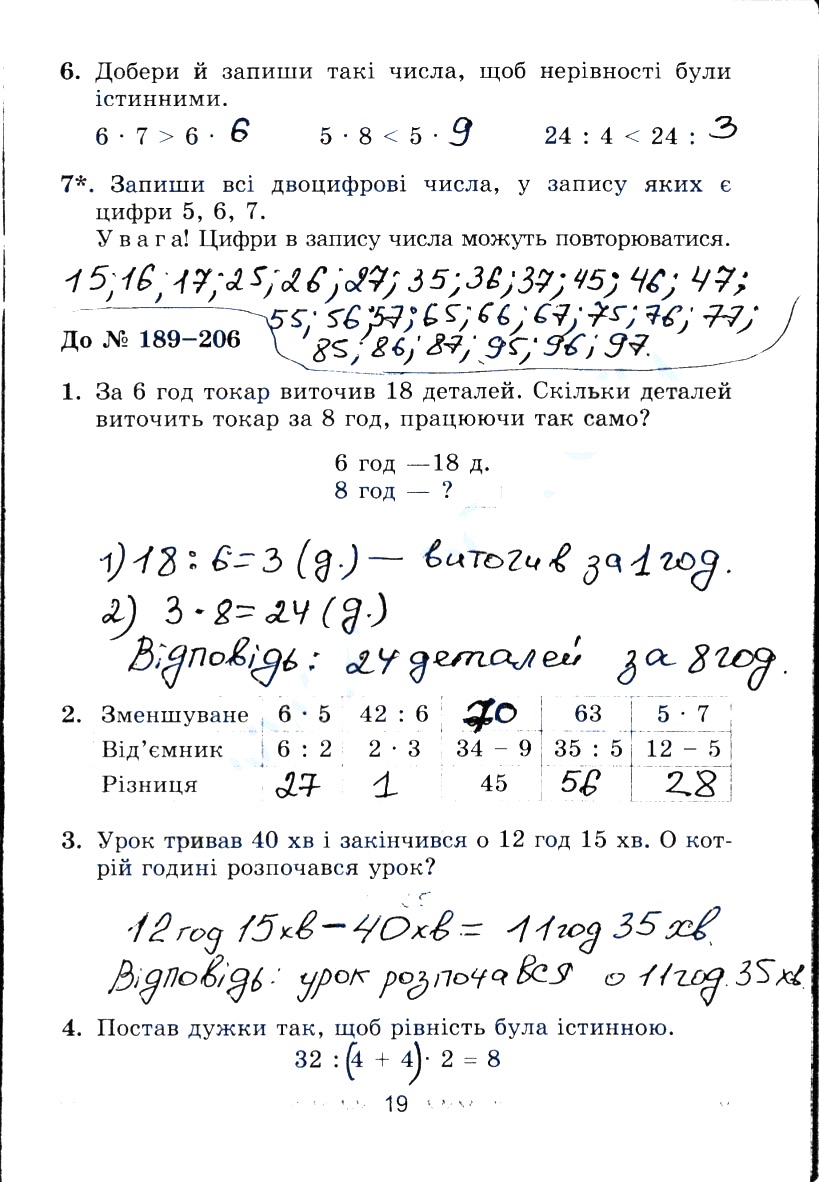 6. Добери й запиши такі числа, щоб нерівності були
істинними.
6 · 7 > 6 · 6 5 · 8 < 5 · 9 24 : 4 < 24 : 3
7*. Запиши всі двоцифрові числа, у запису яких є
цифри 5, 6, 7.
Увага! Цифри в запису числа можуть повторюватися.
15; 16; 17; 25; 26; 27; 35; 36; 37; 45; 46; 47;
55; 56; 57; 65; 66; 67; 75; 76; 77;
До № 189–206
85; 86; 87; 95; 96; 97.
1. За 6 год токар виточив 18 деталей. Скільки деталей
виточить токар за 8 год, працюючи так само?
6 год — 18 д.
8 год — ?
1) 18 : 6 = 3 (д.) — виточив за 1 год.
2) 3 · 8 = 24 (д.)
Відповідь: 24 деталей за 8 год.
2. Зменшуване 6 · 5 42 : 6 70 63 5 · 7
Від’ємник 6 : 2 2 · 3 34 – 9 35 : 5 12 – 5
Різниця 27 1 45 56 28
3. Урок тривав 40 хв і закінчився о 12 год 15 хв. О кот-
рій годині розпочався урок?
12 год 15 хв – 40 хв = 11 год 35 хв.
Відповідь: урок розпочався о 11 год. 35 хв.
4. Постав дужки так, щоб рівність була істинною.
32 : (4 + 4) · 2 = 8
19